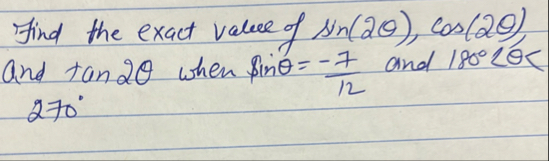 Find the exact value of sin(2θ), cos(2θ),
and tan 2θ when sinθ = -7/12 and 180° < θ <
270°